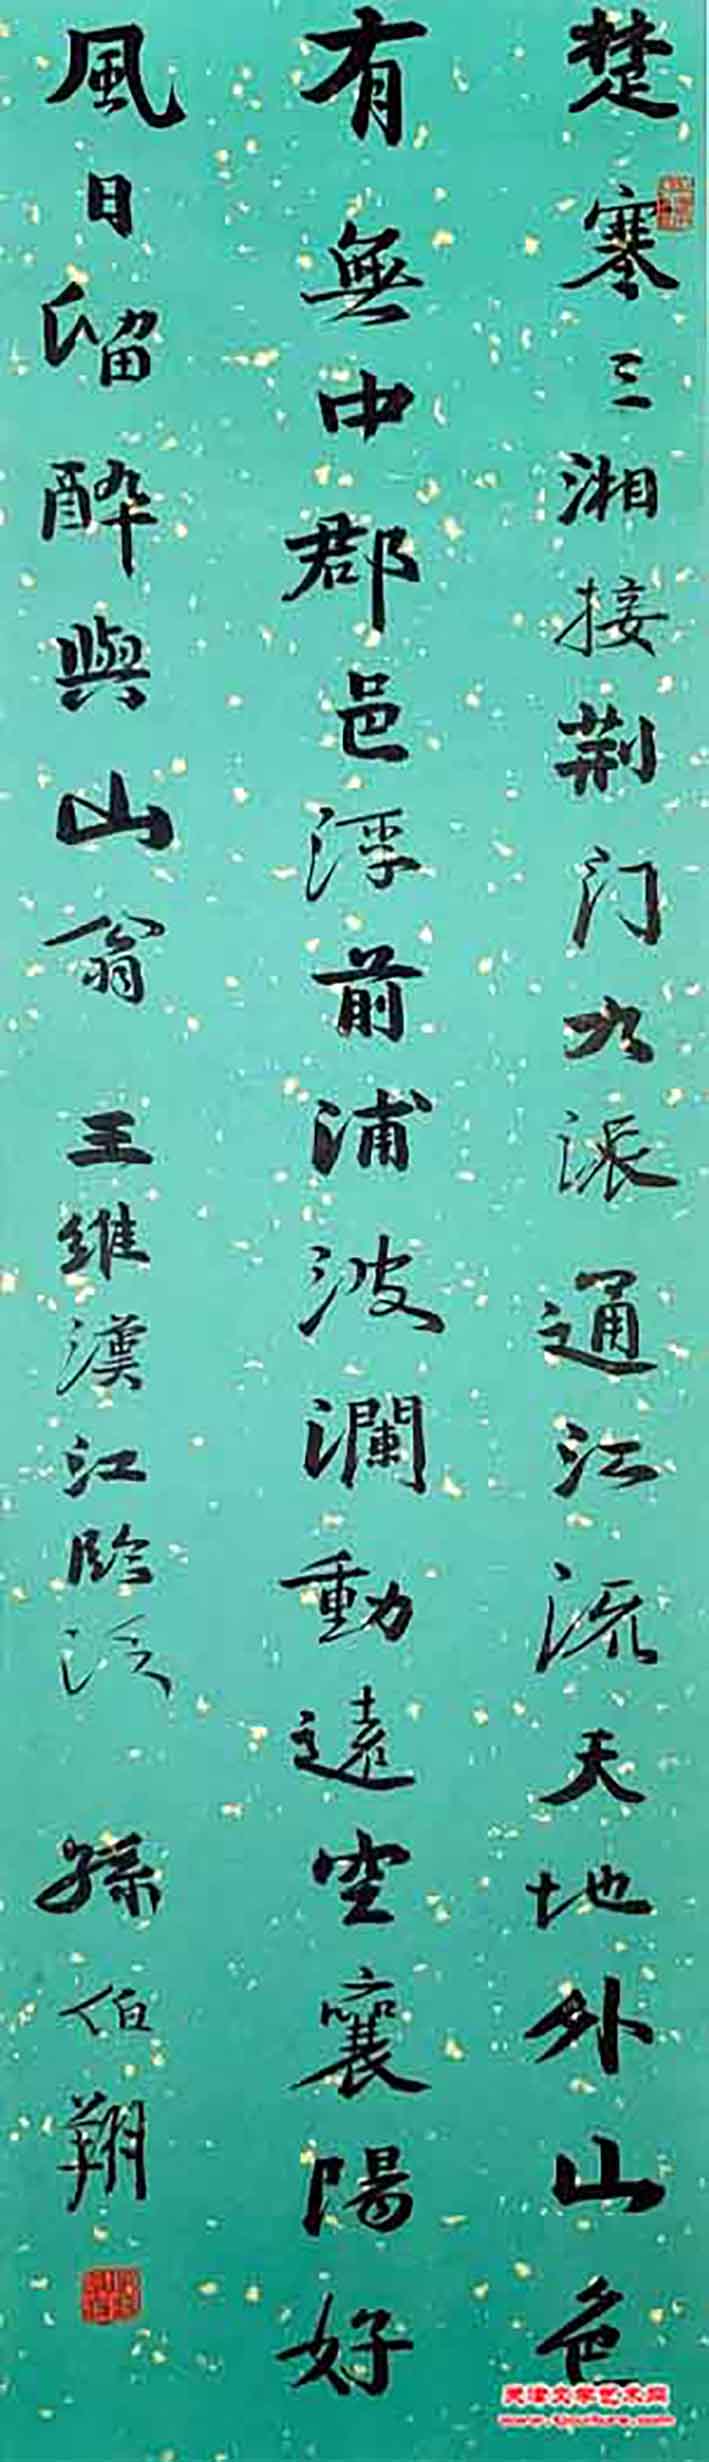 楚塞三湘接荆门九派通江流天地外山色
有無中郡邑浮前浦波瀾動遠空襄陽好
風日留醉與山翁 王維漢江臨泛 孫伯翔
天津文学艺术网